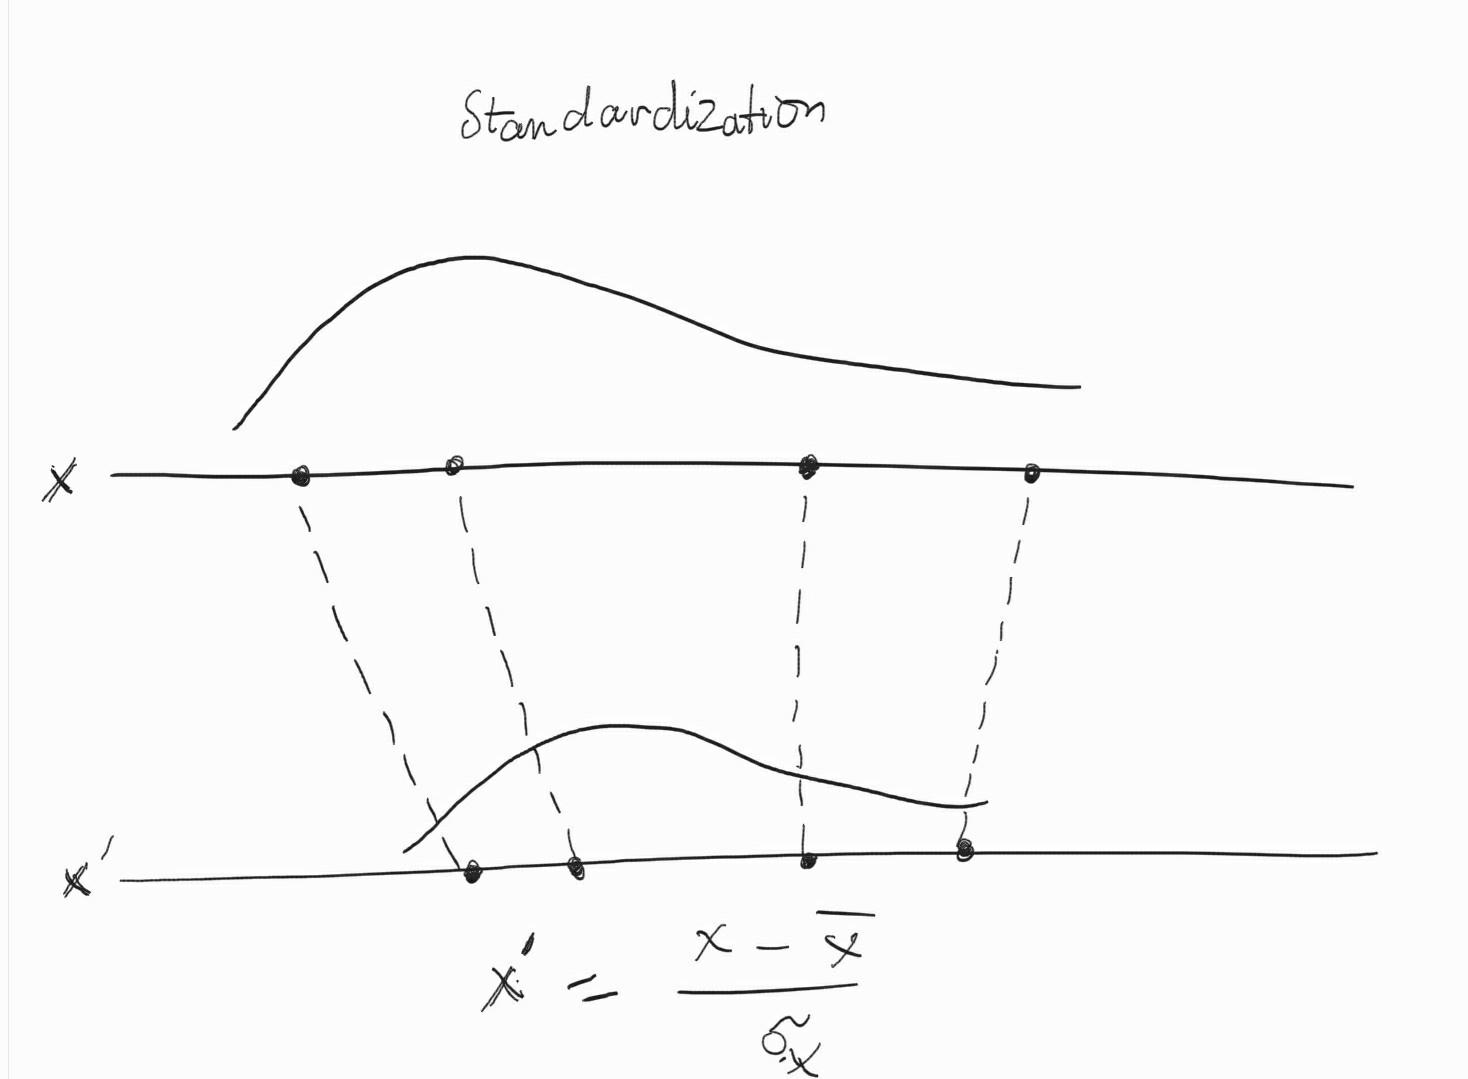 Standardization
x
x′
x′ = (x − x̅) / σx